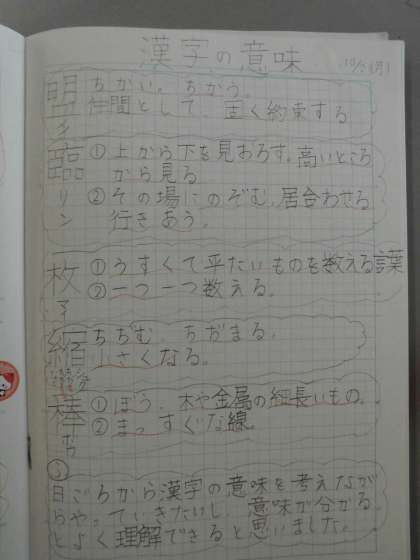 漢字の意味
盟 ちかい。ちかう。
メイ 仲間として、固く約束する
臨 ①上から下を見おろす。高いところ
から見る
リン ②その場にのぞむ。居合わせる
行きあう。
枚 ①うすくて平たいものを数える言葉
マイ ②一つ一つ数える。
縮 ちぢむ。ちぢまる。
小さくなる。
棒 ①ぼう。木や金属の細長いもの。
ボウ ②まっすぐな線。
日ごろから漢字の意味を考えなが
らやっていきたいし、意味が分かる
とよく理解できると思いました。